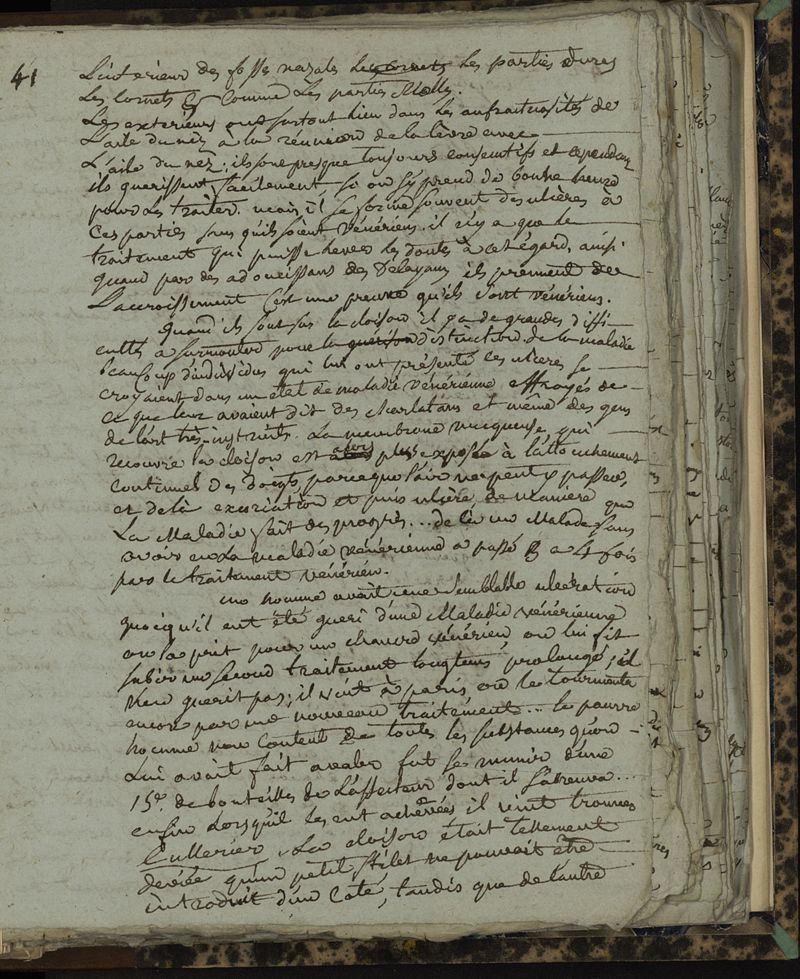 41
L'interieur des fosse nazale les cornets les parties dures
Les Cornets & comme Les parties Molle.
Les exterieurs ont surtout lieu dans les anfractuosités de
L'aile du nez à la réunion de la levre avec
L'aile du nez; ils sont presque toujours consecutifs et cependant
ils querissent facilement, si on s'y prend de bonne heure
pour Les traiter. mais, il se forme souvent des ulcères à
Ces parties sans quils soient Vénériens. il n'y a que le
traitement qui puisse lever les doutes à cet égard, ainsi
quand par des adoucissans des Delayans ils prennent de
L'accroissement C'est une preuve qu'ils sont vénériens.
Quand ils sont sur la cloison Il y a de grandes diffi-
cultés a surmonter pour la distinction de la maladie
beaucoup d'individus qui lui ont présenté ces ulceres se
croyaient dans un état de maladie vénérienne effrayés de
ce que leur avaient dit des charlatans et même des gens
de l'art très instruits. La membrane muqueuse, qui
recouvre la cloison est alors plus exposée à l'attouchement
Continuel des doigts, parceque l'air ne peut y passer,
et de là excoriation et puis ulcère, de maniere que
La Maladie fait des progrès... de là un Malade sans
avoir eu La maladie vénérienne a passé 3 a 4 fois
par le traitement vénérien.
un homme avait une semblable ulceration
quoiqu'il eut été gueri d'une Maladie vénérienne
on la prit pour un chancre vénérien on lui fit
subir un second traitement longtems prolongé; il
n'en querit pas; il vint à paris, on le tourmenta
encore par un nouveau traitement... le pauvre
homme non content de toutes les substances qu'on
Lui avait fait avaler fut se munir d'une
15e. de bouteilles de Laffecteur dont il s'abreuva...
enfin Lorsqu'il les eut achevées il vint trouver
Cullerier. La cloison était tellement
deviée qu'un petit stilet ne pouvait être
introduit d'un Coté, tandis que de l'autre